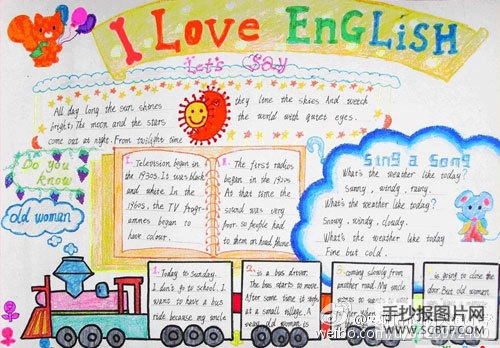 I Love English
Let's Say
All day long the sun shines
bright, The moon and the stars
come out at night. From twilight time
they line the skies And weech
the world with quiet eyes.
Do you
know
old woman
1. Television began in
the 1930s. It was black
and white. In the
1960s, the TV progr-
ammes began to
have colour.
II. The first radios
began in the 1920s
At that time the
sound was very
poor. so people had
to them on head phone
Sing a Song
What's the weather like today?
Sunny, windy, rainy.
What's the weather like today?
Snowy, windy, cloudy.
What's the weather like today
Fine but cold.
1. Today to sunday.
I don't go to school. I
wans to have a bus
ride because my uncle
2. is a bus driver.
The bus starts to move.
After some time it stops
at a small village. A
very old woman is
3. coming slowly from
another road. My uncle
is going to close the
door. But old women
手抄报图片网
WWW.SCBTP.COM